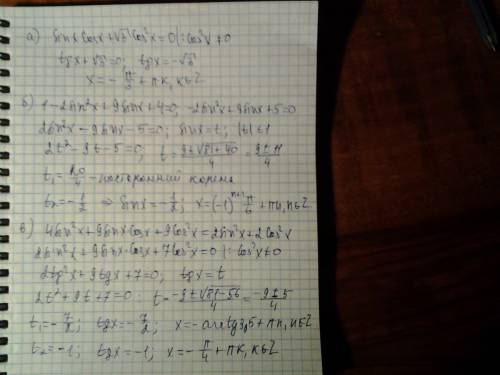 а) sinx cosx + √3 cos²x = 0 |: cos²x ≠ 0
tgx + √3 = 0; tgx = -√3
x = -π/3 + πk, k∈Z
б) 1 - 2sin²x + 9sinx + 4 = 0; -2sin²x + 9sinx + 5 = 0
2sin²x - 9sinx - 5 = 0; sinx = t; |t| ≤ 1
2t² - 9t - 5 = 0; t = (9 ± √(81+40))/4 = (9 ± 11)/4
t₁ = 20/4 - посторонний корень
t₂ = -1/2 ⇒ sinx = -1/2; x = (-1)ⁿ⁺¹ π/6 + πn, n∈Z
в) 4sin²x + 9sinx cosx + 9cos²x = 2sin²x + 2cos²x
2sin²x + 9sinx·cosx + 7cos²x = 0 |: cos²x ≠ 0
2tg²x + 9tgx + 7 = 0; tgx = t
2t² + 9t + 7 = 0; t = (-9 ± √(81-56))/4 = (-9 ± 5)/4
t₁ = -7/2; tgx = -7/2; x = -arctg3,5 + πn, n∈Z
t₂ = -1; tgx = -1; x = -π/4 + πk, k∈Z